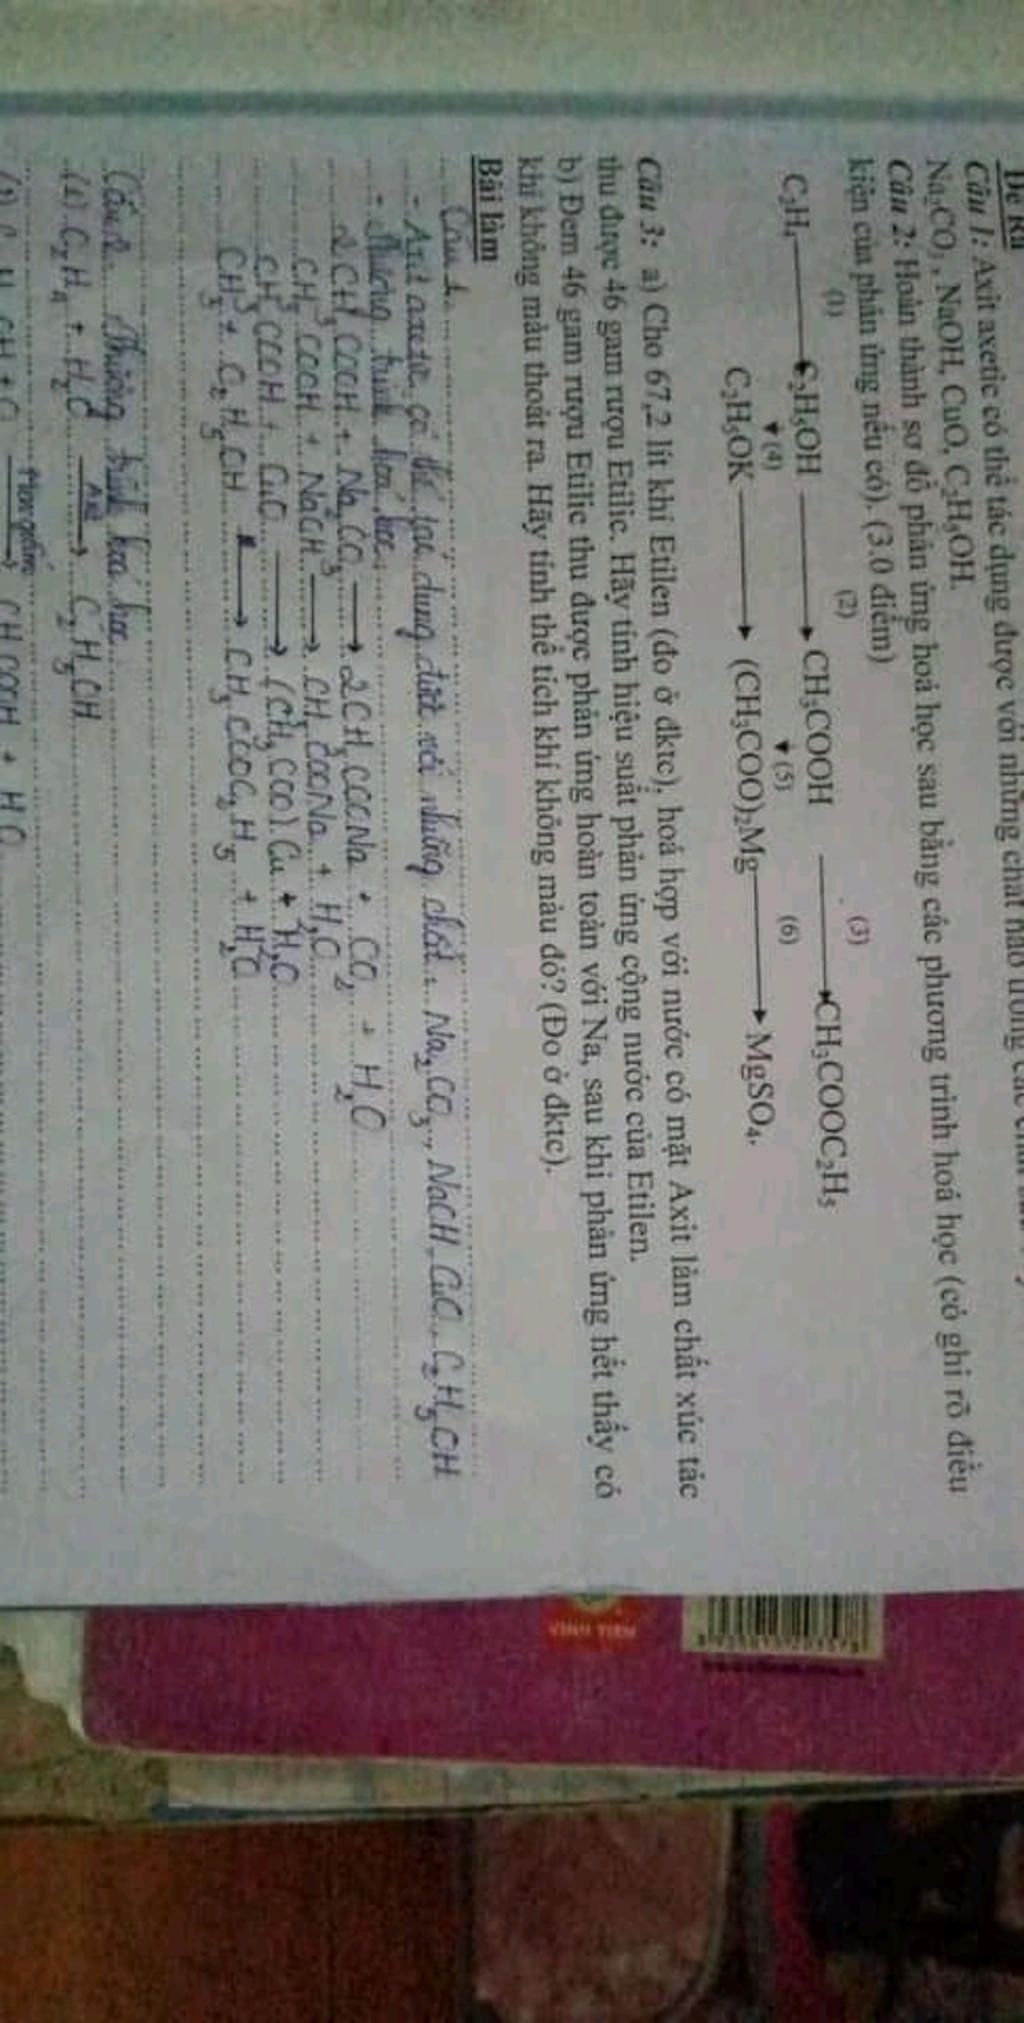 Đề Ra
Câu 1: Axit axetic có thể tác dụng được với những chất nào trong các
Na₂CO₃, NaOH, CuO, C₂H₅OH.
Câu 2: Hoàn thành sơ đồ phản ứng hoá học sau bằng các phương trình hoá học (có ghi rõ điều
kiện của phản ứng nếu có). (3.0 điểm)
(1) (2) (3)
C₂H₄ → C₂H₅OH → CH₃COOH → CH₃COOC₂H₅
(4) (5) (6)
C₂H₅OK → (CH₃COO)₂Mg → MgSO₄.
Câu 3: a) Cho 67,2 lít khí Etilen (đo ở đktc), hoá hợp với nước có mặt Axit làm chất xúc tác
thu được 46 gam rượu Etilic. Hãy tính hiệu suất phản ứng cộng nước của Etilen.
b) Đem 46 gam rượu Etilic thu được phản ứng hoàn toàn với Na, sau khi phản ứng hết thấy có
khí không màu thoát ra. Hãy tính thể tích khí không màu đó? (Đo ở đktc).
Bài làm
Câu 1
- Axit axetic có thể tác dụng được với những chất: Na₂CO₃, NaOH, CuO, C₂H₅OH
- Phương trình hoá học
2CH₃COOH + Na₂CO₃ → 2CH₃COONa + CO₂ + H₂O
CH₃COOH + NaOH → CH₃COONa + H₂O
CH₃COOH + CuO → (CH₃COO)₂Cu + H₂O
CH₃ + C₂H₅OH → CH₃COOC₂H₅ + H₂O
Câu 2. Phương trình hoá học
(1) C₂H₄ + H₂O Axit → C₂H₅OH
Men giấm → CH₃COOH + H₂O
VINH TIEN